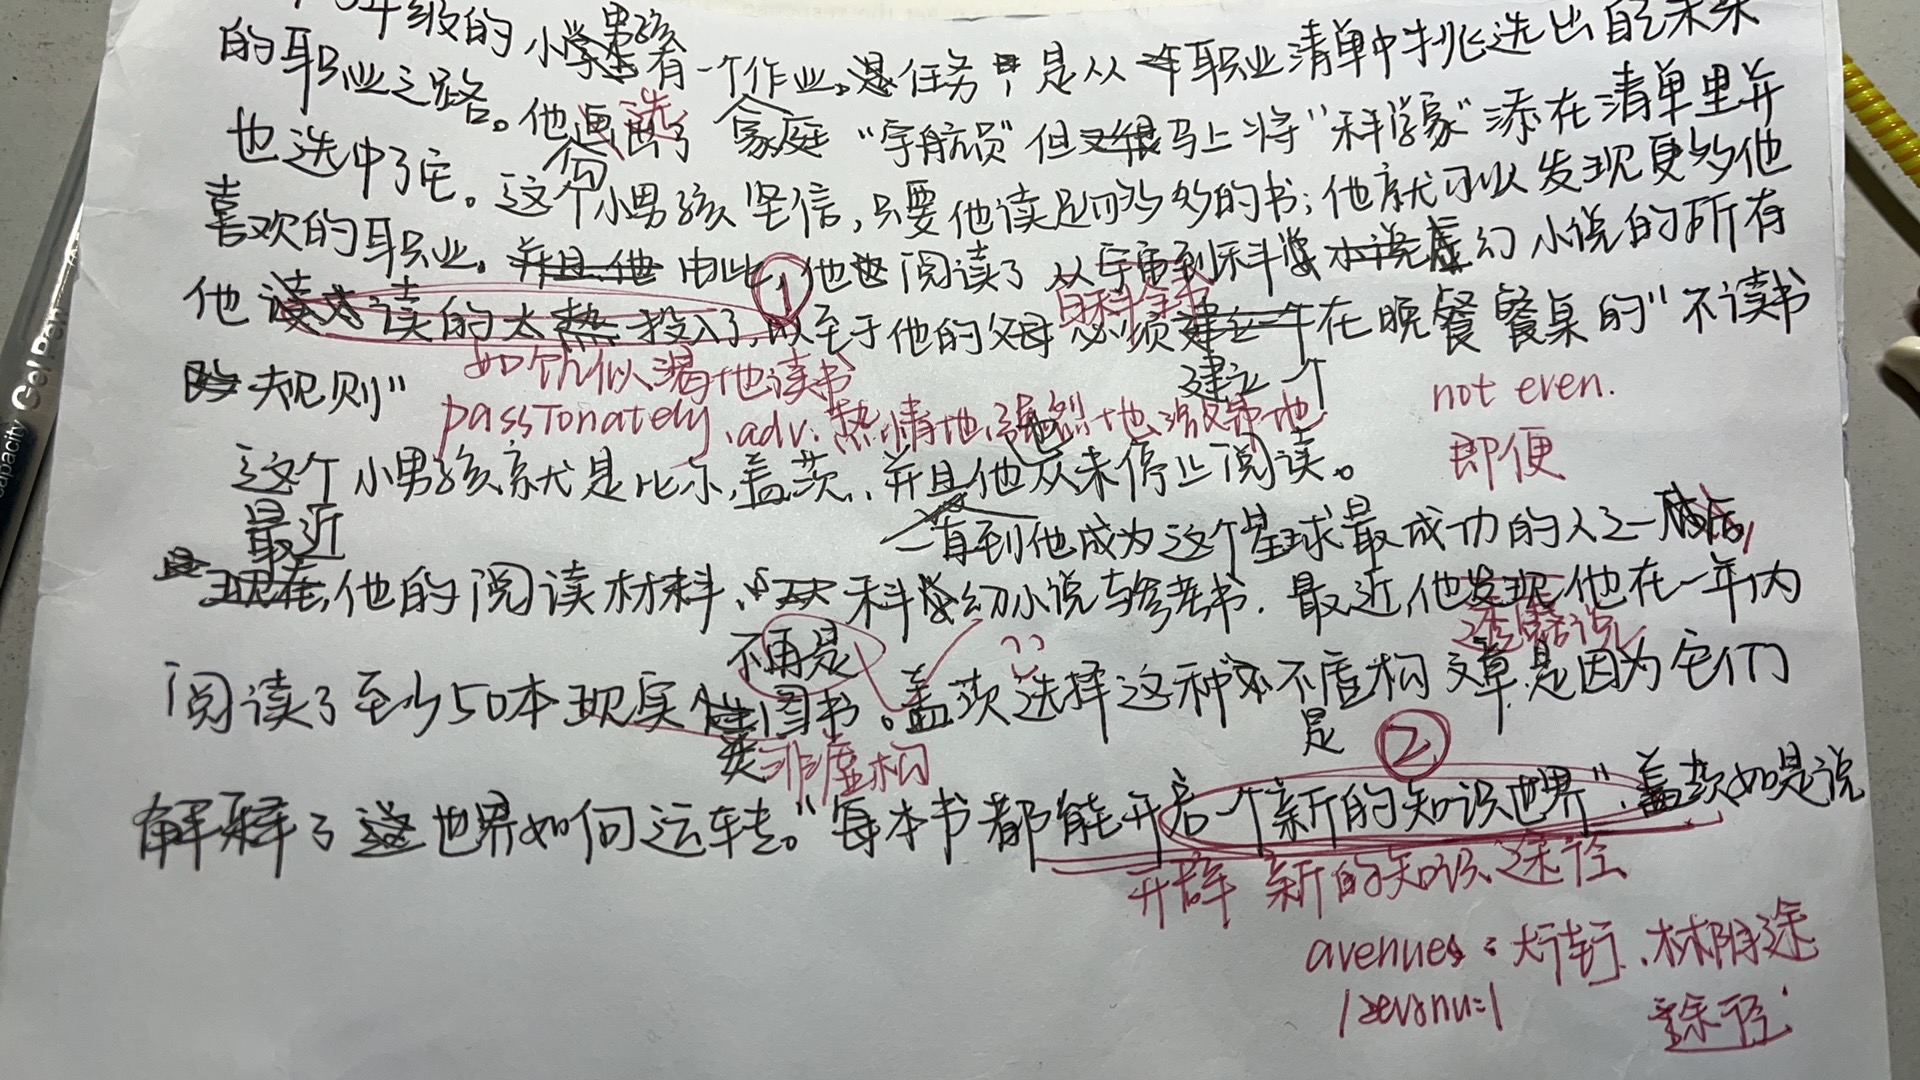 年级的小学男孩有一个作业。任务是从职业清单中挑选出自己未来
的职业之路。他选了"宇航员"但马上将"科学家"添在清单里并
也选中了它。这个小男孩坚信,只要他读足够多的书;他就可以发现更多他
喜欢的职业。由此,他阅读了从宇宙到科幻小说的所有
百科全书
他读的太投入了,以至于他的父母必须在晚餐餐桌的"不读书
建立一个
规则"
如饥似渴地读书
passionately.adv.热情地,强烈地,激昂地
not even.
即便
这个小男孩就是比尔.盖茨,并且他从未停止阅读。
一直到他成为这个星球最成功的人之一
最近
他的阅读材料,科幻小说与参考书.最近,他发现他在一年内
不再是
透露说
阅读了至少50本现实类图书。盖茨选择这种不虚构文章是因为它们
非虚构
是
②
解释了世界如何运转。"每本书都能开启一个新的知识世界".盖茨如是说
开辟 新的知识途径
avenues:大街,林阴途
途径